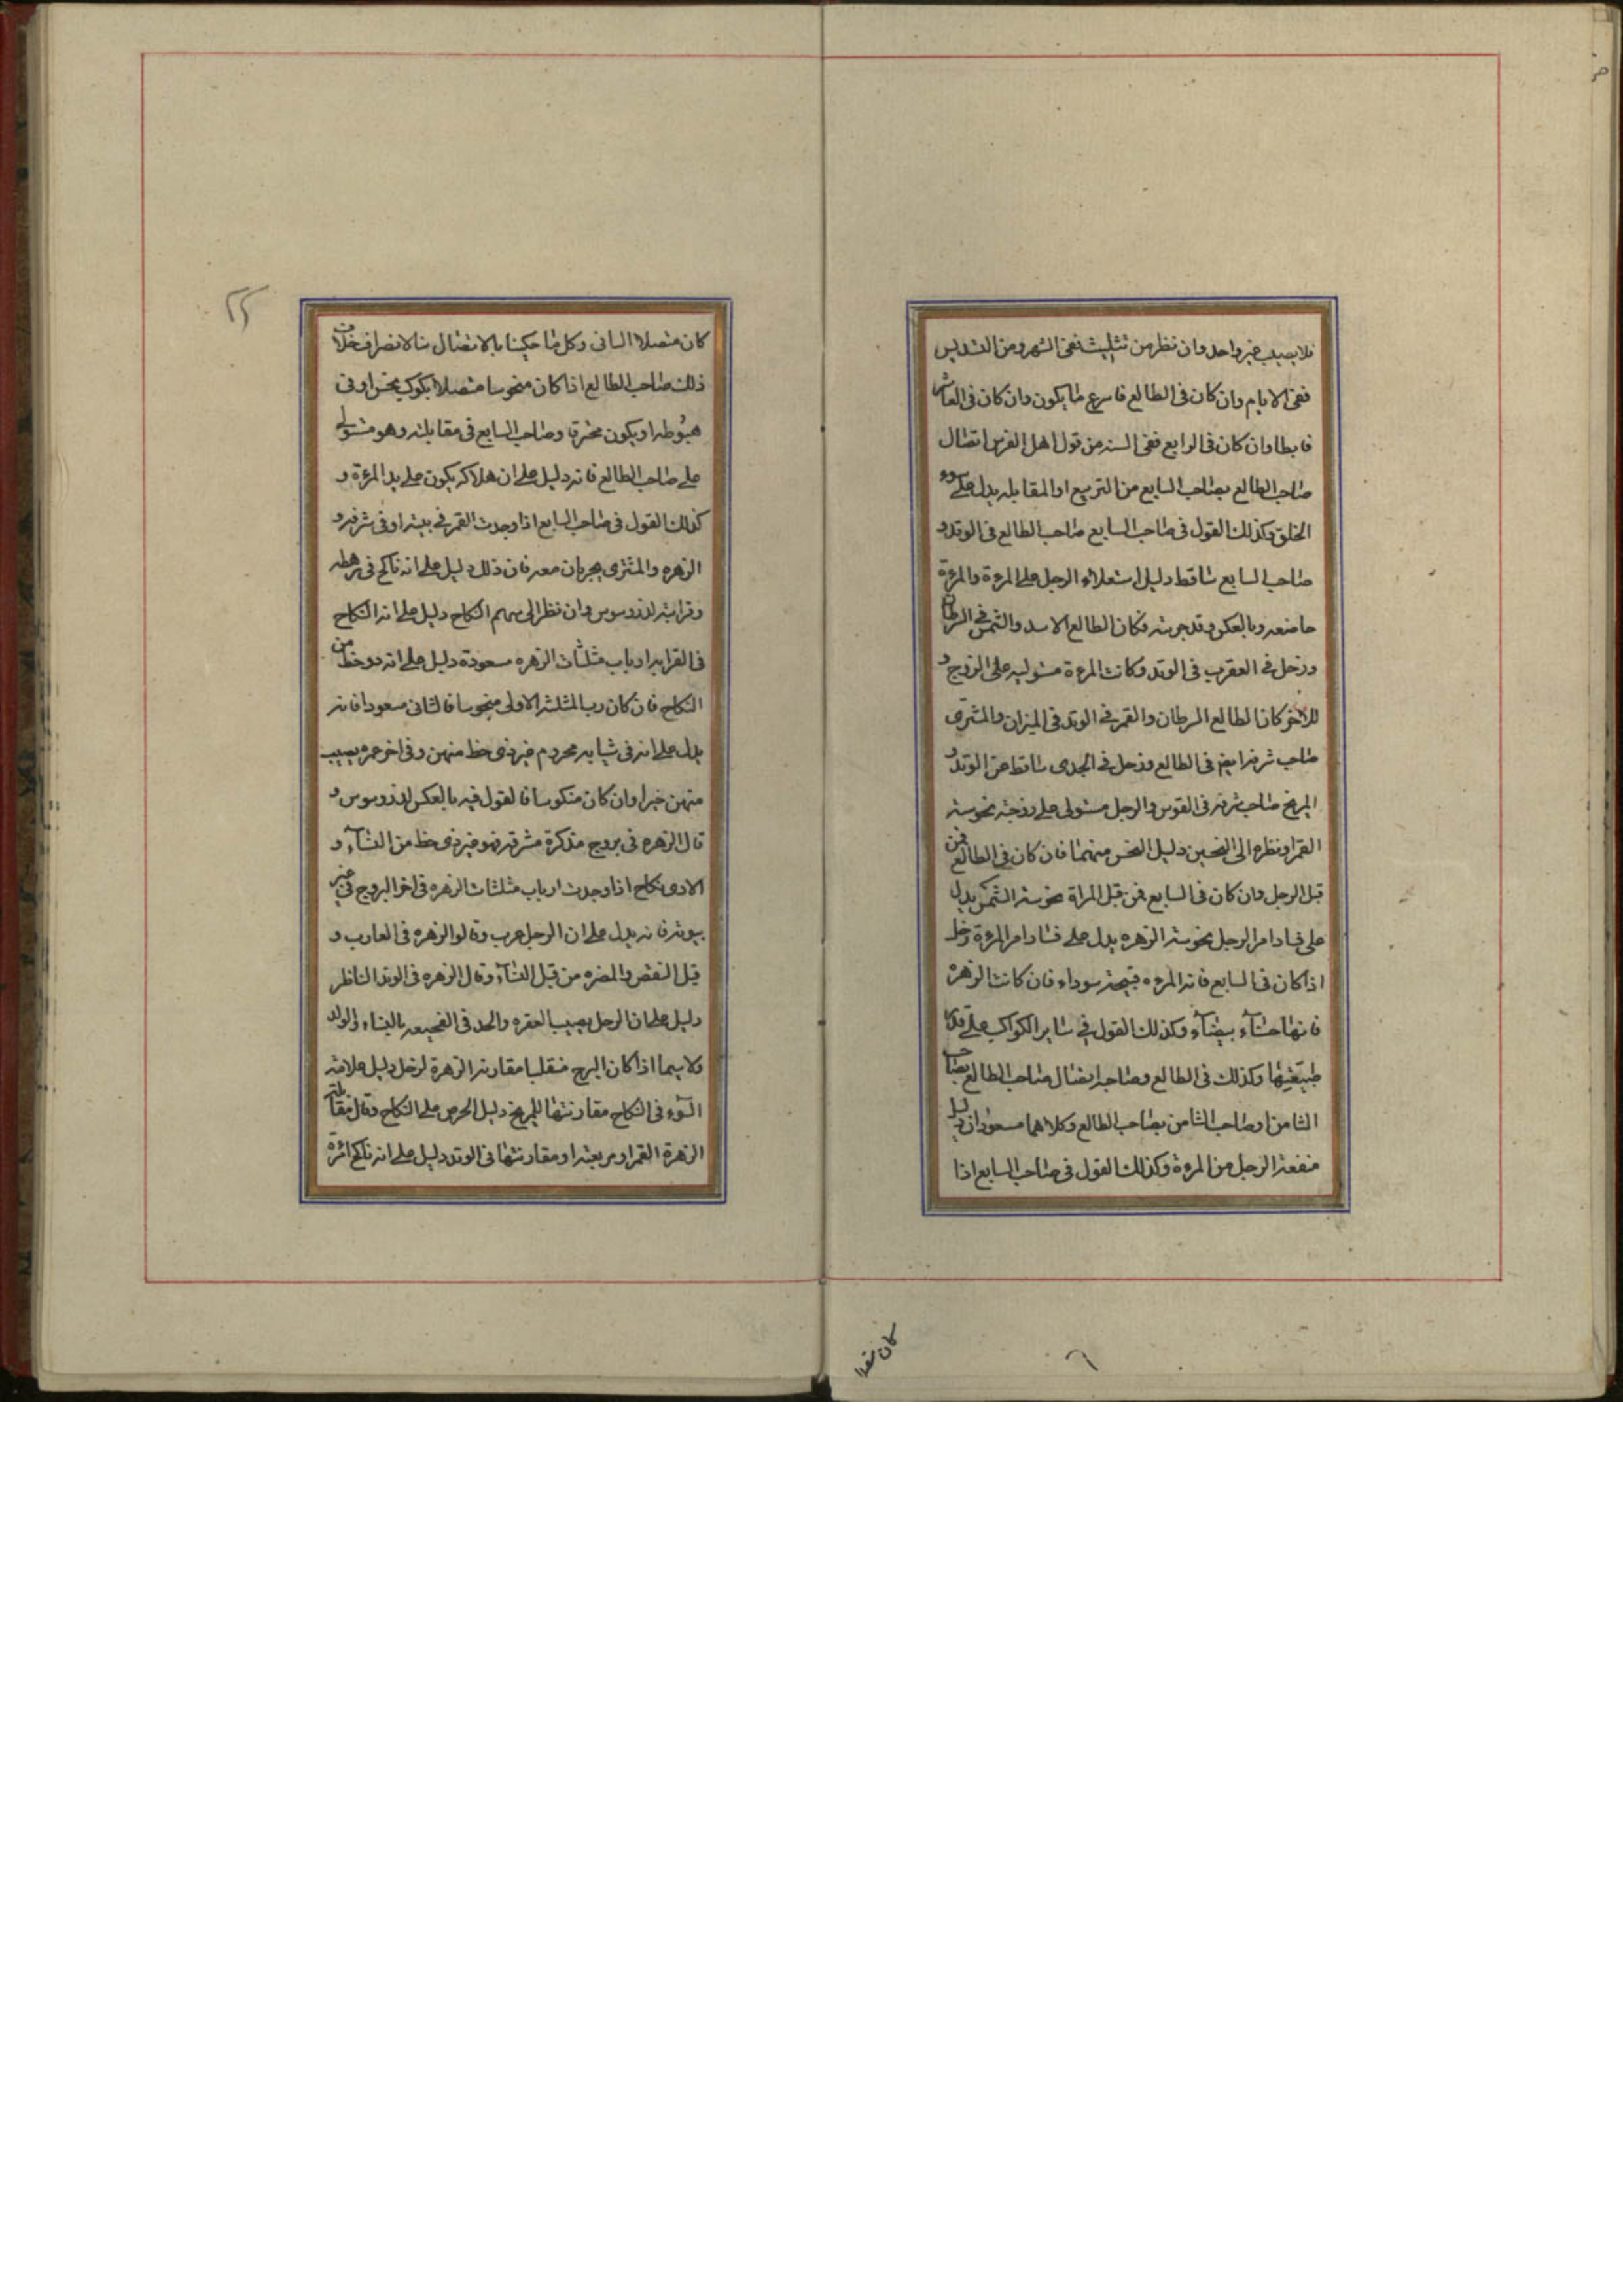 فلا يصيب غير واحد وان نظر من تثليث ففى الشهر ومن التسديس
ففى الايام وان كان فى الطالع فاسرع ما يكون وان كان فى العاشر
فابطا وان كان فى الرابع ففى السنه من قول اهل الفرس اتصال
صاحب الطالع بصاحب السابع من التربيع او المقابله يدل على سوء
الخلق وكذلك القول فى صاحب السابع صاحب الطالع فى الوتد و
صاحب السابع ساقط دليل استعلاء الرجل على المرءة والمرءة
خاضعه وبالعكس وقد جربته فكان الطالع الاسد والشمس فى السرطان
وزحل فى العقرب فى الوتد وكانت المرءة مستوليه على الزوج و
للاخر كان الطالع السرطان والقمر فى الوتد فى الميزان والمشترى
صاحب شرفه ايضا فى الطالع وزحل فى الجدى ساقط عن الوتد و
المريخ صاحب شرفه فى القوس والرجل مستولى على زوجته نحوسته
القمر او نظره الى النحسين دليل النحس منهما فان كان فى الطالع فمن
قبل الرجل وان كان فى السابع فمن قبل المراة نحوسته الشمس يدل
على فساد امر الرجل نحوسته الزهره يدل على فساد امر المرءة وزحل
اذا كان فى السابع فانه المرءه قبيحة سوداء فان كانت الزهرة
فانها حسنآء بيضآء وكذلك القول فى ساير الكواكب على قدر
طبيعتها وكذلك فى الطالع وصاحبه اتصال صاحب الطالع بصاحب
الثامن او صاحب الثامن بصاحب الطالع وكلاهما مسعودان دليل
منفعة الرجل من المرءة وكذلك القول فى صاحب السابع اذا
كان متصلا
٢٥
كان متصلا الثانى وكل ما حكينا بالاتصال بالانصراف خلاف
ذلك صاحب الطالع اذا كان منحوسا متصلا بكوكب نحس او فى
هبوطه او يكون محترقا وصاحب السابع فى مقابلته وهو مستولى
على صاحب الطالع فانه دليل على ان هلاكه يكون على يد المرءة و
كذلك القول فى صاحب السابع اذا وجدت القمر فى بيته او فى شرفه و
الزهره والمشترى يجريان معه فان ذلك دليل على انه ناكح فى رهطه
وقرابته لذروسوس وان نظر الى سهم النكاح دليل على انه النكاح
فى القرابه ارباب مثلثات الزهره مسعودة دليل على انه ذو حظ من
النكاح فان كان رب المثلثه الاولى منحوسا فالثانى مسعودا فانه
يدل على انه فى شبابه محروم غير ذى حظ منهن وفى اخر عمره يصيب
منهن خيرا وان كان منكوسا فالقول فيه بالعكس لذروسوس و
قال الزهره فى بروج مذكرة مشرقه فهو غير ذى حظ من النسآء و
الاذى نكاح اذا وجدت ارباب مثلثات الزهره فى اخر البروج فى غير
بيوته فانه يدل على ان الرجل عرب وقالوا الزهره فى الغارب و
قبل النقص والمضره من قبل النسآء وقال الزهره فى الوتد الناظر
دليل على ان الرجل يصيب العقره والحد فى الفجيعه بالنساء والولد
ولا سيما اذا كان البرج منقلبا مقارنه الزهرة لزحل دليل علامة
السوء فى النكاح مقارنتها للمريخ دليل الحرص على النكاح وقال مقابلة
الزهرة القمر او مربعته او مقارنتها فى الوتد دليل على انه ناكح اثره